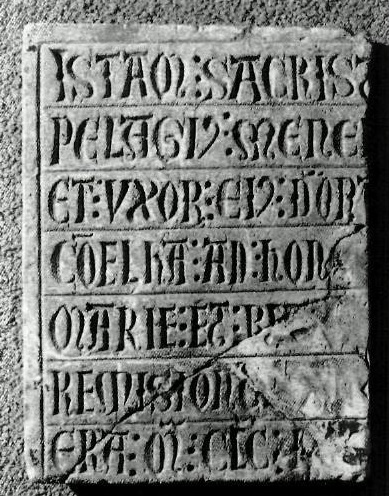 ISTAM : SACRIST
PELAGIꝰ : MENE
ET : VXOR : EIꝰ : DÕR
COELHA : AD : HON
MARIE : ET :
REMISIONE
ERA : M̃ : CLC